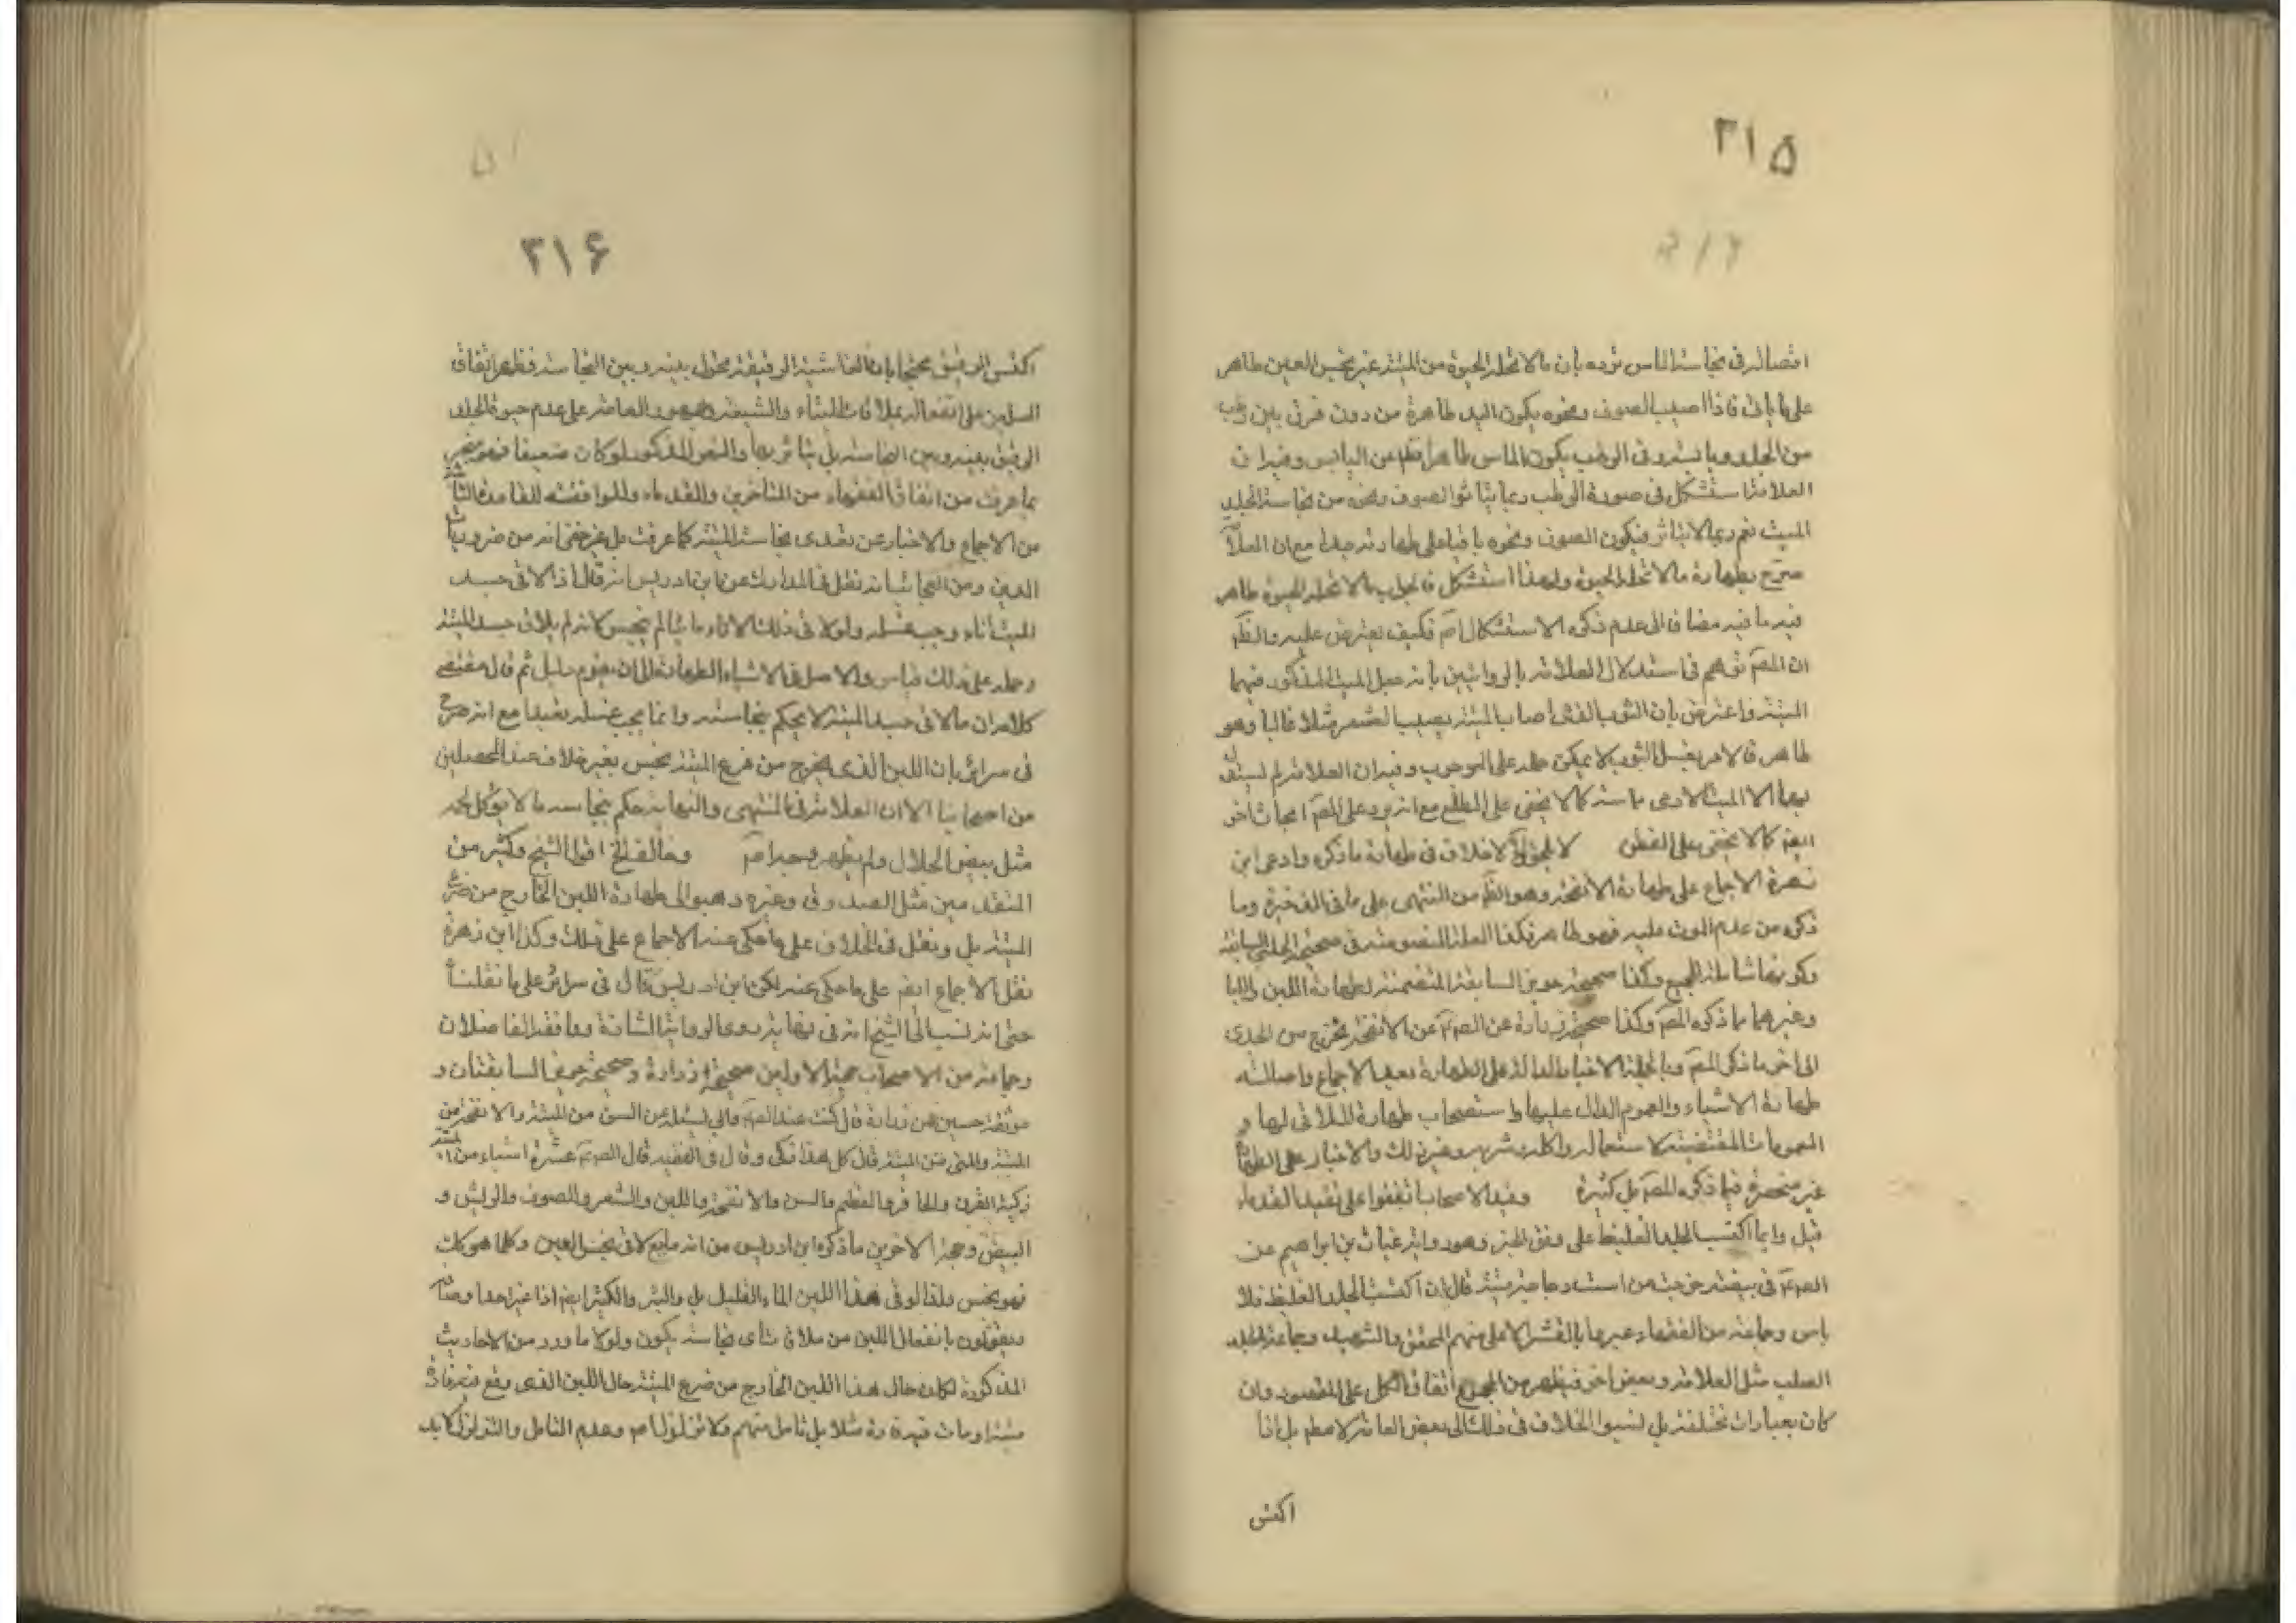 ۳۱۵
۳۱۶
اتصاله في نجاسة الماس نرده بان ما لا تحله الحيوة من الميتة غير نجس العين طاهر
على ما ياتى فاذا اصيب الصوف ونحوه يكون اليد طاهرة من دون فرق بين رطب
من الجلد ويابسه وفى الرطب يكون الماس طاهرا فظهر عن اليابس وفيه ان
العلامة استشكل فى صورة الرطب ربما يتاثر الصوف ونحوه من نجاسة الجلد
الميت نعم ربما لا يتاثر فيكون الصوف ونحوه باقيا على طهارته جدا مع ان العلامة
صرح بطهارة ما لا تحله الحيوة ولهذا استشكل فالجواب بما لا تحله الحيوة طاهر
فيه ما فيه مضافا الى عدم ذكره الاستشكال اصلا فكيف يعترض عليه والظ
ان المص توهم فى استدلال العلامة بالروايتين بانه جعل الميت المذكور فيهما
الميتة واعترض بان الثوب الذى اصاب الميتة يصيب الشعر مثلا غالبا وهو
طاهر فالامر بغسل الثوب لا يمكن حمله على الوجوب وفيه ان العلامة لم يستدل
بهما الا الميت الادمى خاصة كما لا يخفى على المطلع مع انه يرد على المص ابحاث اخر
ايضا كما لا يخفى على الفطن لا خلاف فى طهارة ما ذكره وادعى ابن
زهرة الاجماع على طهارة الانفحة وهو الظ من المنتهى على ما فى الذخيرة وما
ذكره من عدم الموت عليه فهو ظاهر وكذا العلة المنصوصة فى صحيحة الحلبى السابقة
وكونها شاملة للجميع وكذا صحيحة حريز السابقة المتضمنة لطهارة اللبن واللباء
وغيرهما مما ذكره المص وكذا صحيحة زرارة عن الص ع عن الانفحة تخرج من الجدى
الى اخر ما ذكره المص وبالجملة الاخبار الدالة على الطهارة بعد الاجماع واصالة
طهارة الاشياء والعموم الدال عليها واستصحاب طهارة الملاقى لها و
العمومات المقتضية لاستعماله واكله وشربه وغير ذلك والاخبار على الطهارة
غير منحصرة فيما ذكره المص بل كثيرة وقيد الاصحاب اتفقوا على تقييد القدماء
قيل وانما اكتسب الجلد الغليظ على وفق الخبر وهو رواية غياث بن ابراهيم عن
الص ع فى بيضة خرجت من است دجاجة ميتة قال ان اكتست الجلد الغليظ فلا
باس وجماعة من الفقهاء عبروا بالقشر الاعلى منهم المحقق والشهيد وجماعة الجلد
الصلب مثل العلامة وبعض اخر فيظهر من الجميع اتفاق الكل على المقصود وان
كان بعبارات مختلفة بل نسبوا الخلاف فى ذلك الى بعض العامة لا مطلقا بل اذا
اكتسى
اكتسى الرقيق محتجا بان الغاشية الرقيقة تحول بينه وبين النجاسة فظهر اتفاق
المسلمين على انفعاله بملاقات الميتة والشيعة وجمهور العامة على عدم حيوة الجلد
الرقيق بينه وبين النجاسة بل يتاثر بها والنص المذكور لو كان ضعيفا فهو منجبر
بما عرفت من اتفاق الفقهاء من المتاخرين والقدماء ولموافقته للقاعدة الثابتة
من الاجماع والاخبار عن تعدى نجاسة الميتة كما عرفت بل غير خفى انه من ضروريات
الدين ومن العجائب انه نقل فى المدارك عن ابن ادريس انه قال اذا لاقى جسد
الميت اناء وجب غسله ولو لاقى ذلك الاناء مايعا لم ينجس لانه لم يلاق جسد الميتة
وحمله على ذلك قياس والاصل فى الاشياء الطهارة الى ان يقوم دليل ثم قال مقتضى
كلامه ان ما لاقى جسد الميتة لا يحكم بنجاسته وانما يجب غسله تعبدا مع انه صرح
فى سرائره بان اللبن الذى يخرج من ضرع الميتة نجس بغير خلاف عند المحصلين
من اصحابنا الا ان العلامة فى المنتهى والنهاية حكم بنجاسة ما لا يؤكل لحمه
مثل بيض الحلال ولم يظهر وجهه اصلا وخالف الخ اقول الشيخ وكثير من
المتقدمين مثل الصدوق وغيره ذهبوا الى طهارة اللبن الخارج من ضرع
الميتة بل ونقل فى الخلاف على ما حكى عنه الاجماع على ذلك وكذا ابن زهرة
نقل الاجماع ايضا على ما حكى عنه لكن ابن ادريس قال فى سرائره على ما نقلنا
حتى انه نسب الى الشيخ انه فى نهايته روى الرواية الشاذة ووافقه الفاضلان
وجماعة من الاصحاب حجة الاولين صحيحة زرارة وصحيحة حريز السابقتان و
موثقة حسين بن زرارة قال كنت عند الص ع وابى يسئله عن السن من الميتة والانفحة من
الميتة واللبن من الميتة فقال كل هذا ذكى وقال فى الفقيه قال الص ع عشرة اشياء من الميتة
ذكية القرن والحافر والعظم والسن والانفحة واللبن والشعر والصوف والريش و
البيض وحجة الاخرين ما ذكره ابن ادريس من انه مايع لاقى نجس العين وكلما هو كك
فهو نجس ولذا لو لاقى هذا اللبن الماء القليل بل والبئر والكثير ايضا اذا غير احد اوصافه
يقولون بانفعال اللبن من ملاقات اى نجاسة يكون ولولا ما ورد من الاحاديث
المذكورة لكان حال هذا اللبن الخارج من ضرع الميتة حال اللبن الذى وقع فيه فارة
ميتة او مات فيه فارة مثلا بلا تامل منهم ولا تزلزل اصلا وعدم التامل والتزلزل لا بد